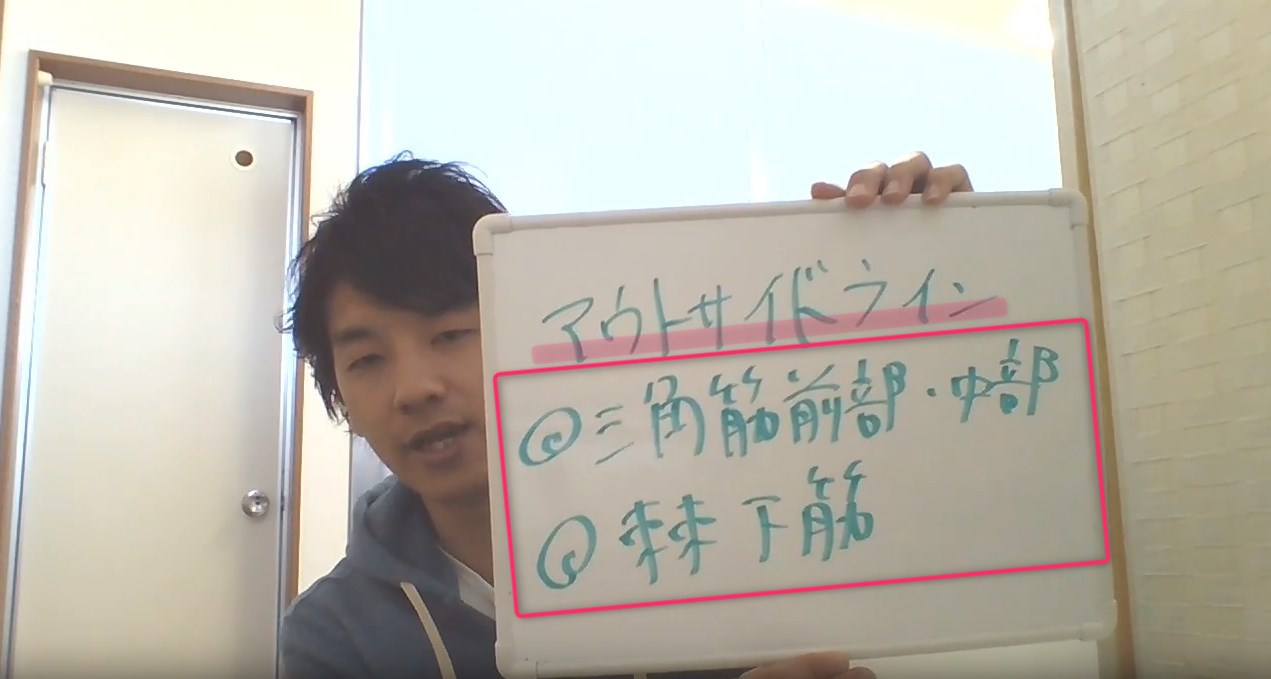 アウトサイドライン
◎三角筋前部・中部
◎棘下筋